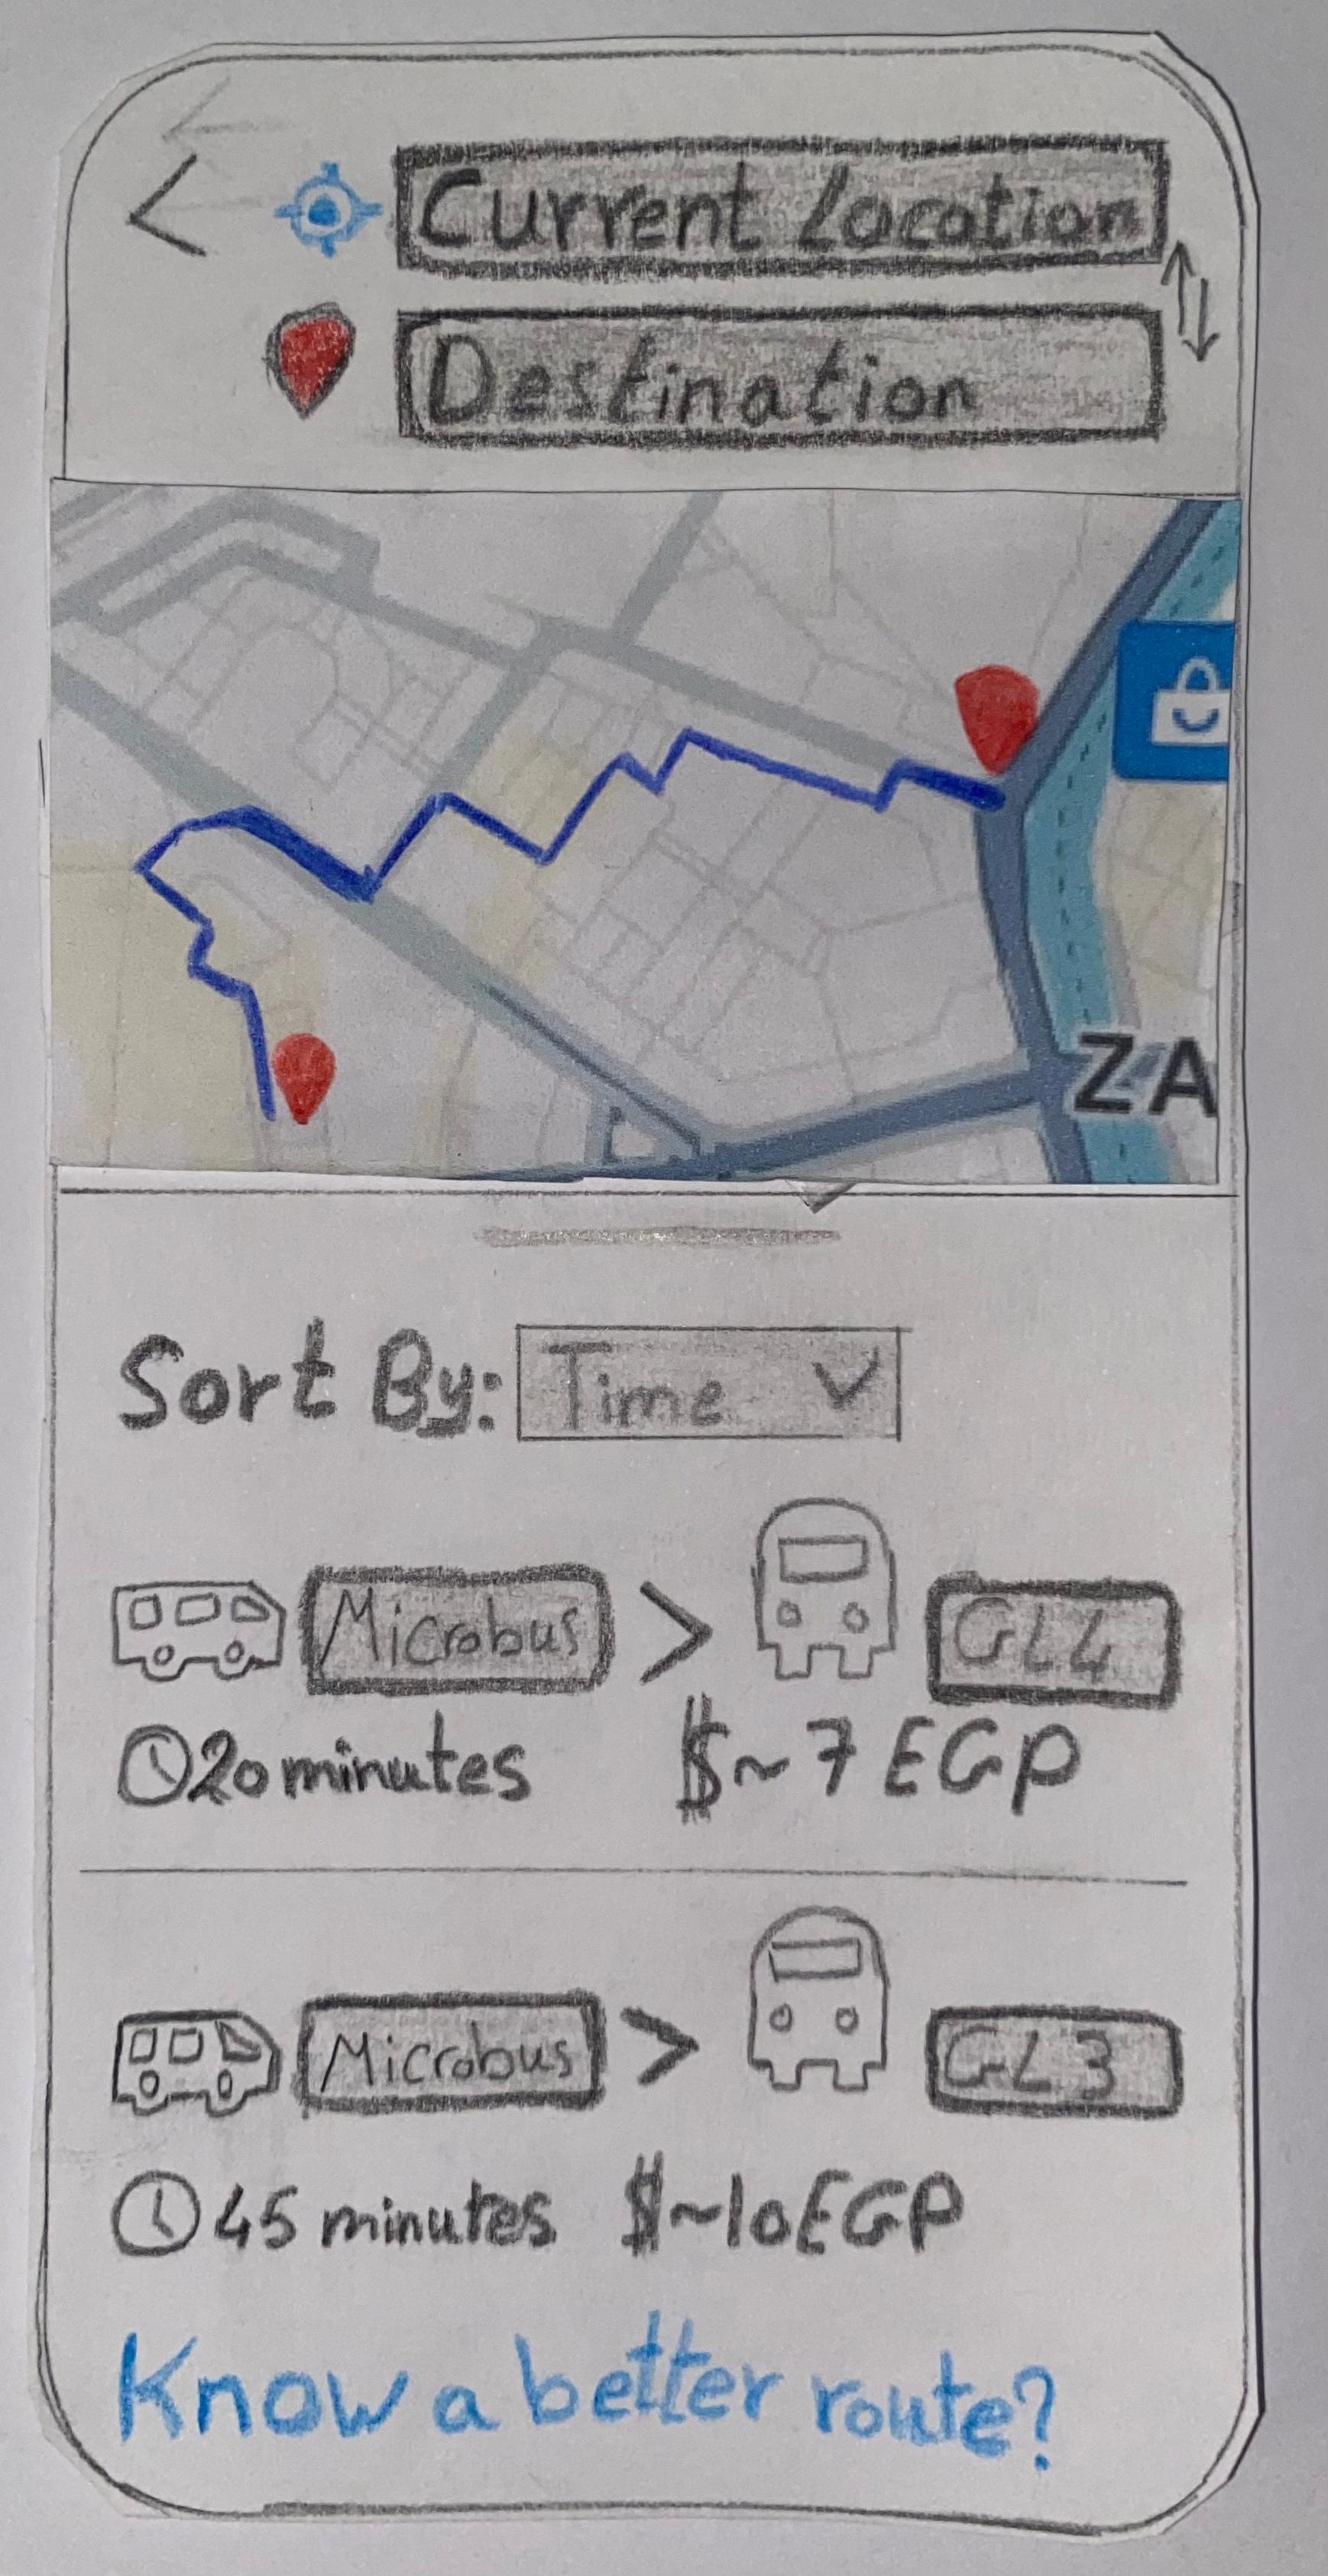 Current Location
Destination
ZA
Sort By: Time
Microbus > GL4
20 minutes $~7 EGP
Microbus > GL3
45 minutes $~10 EGP
Know a better route?